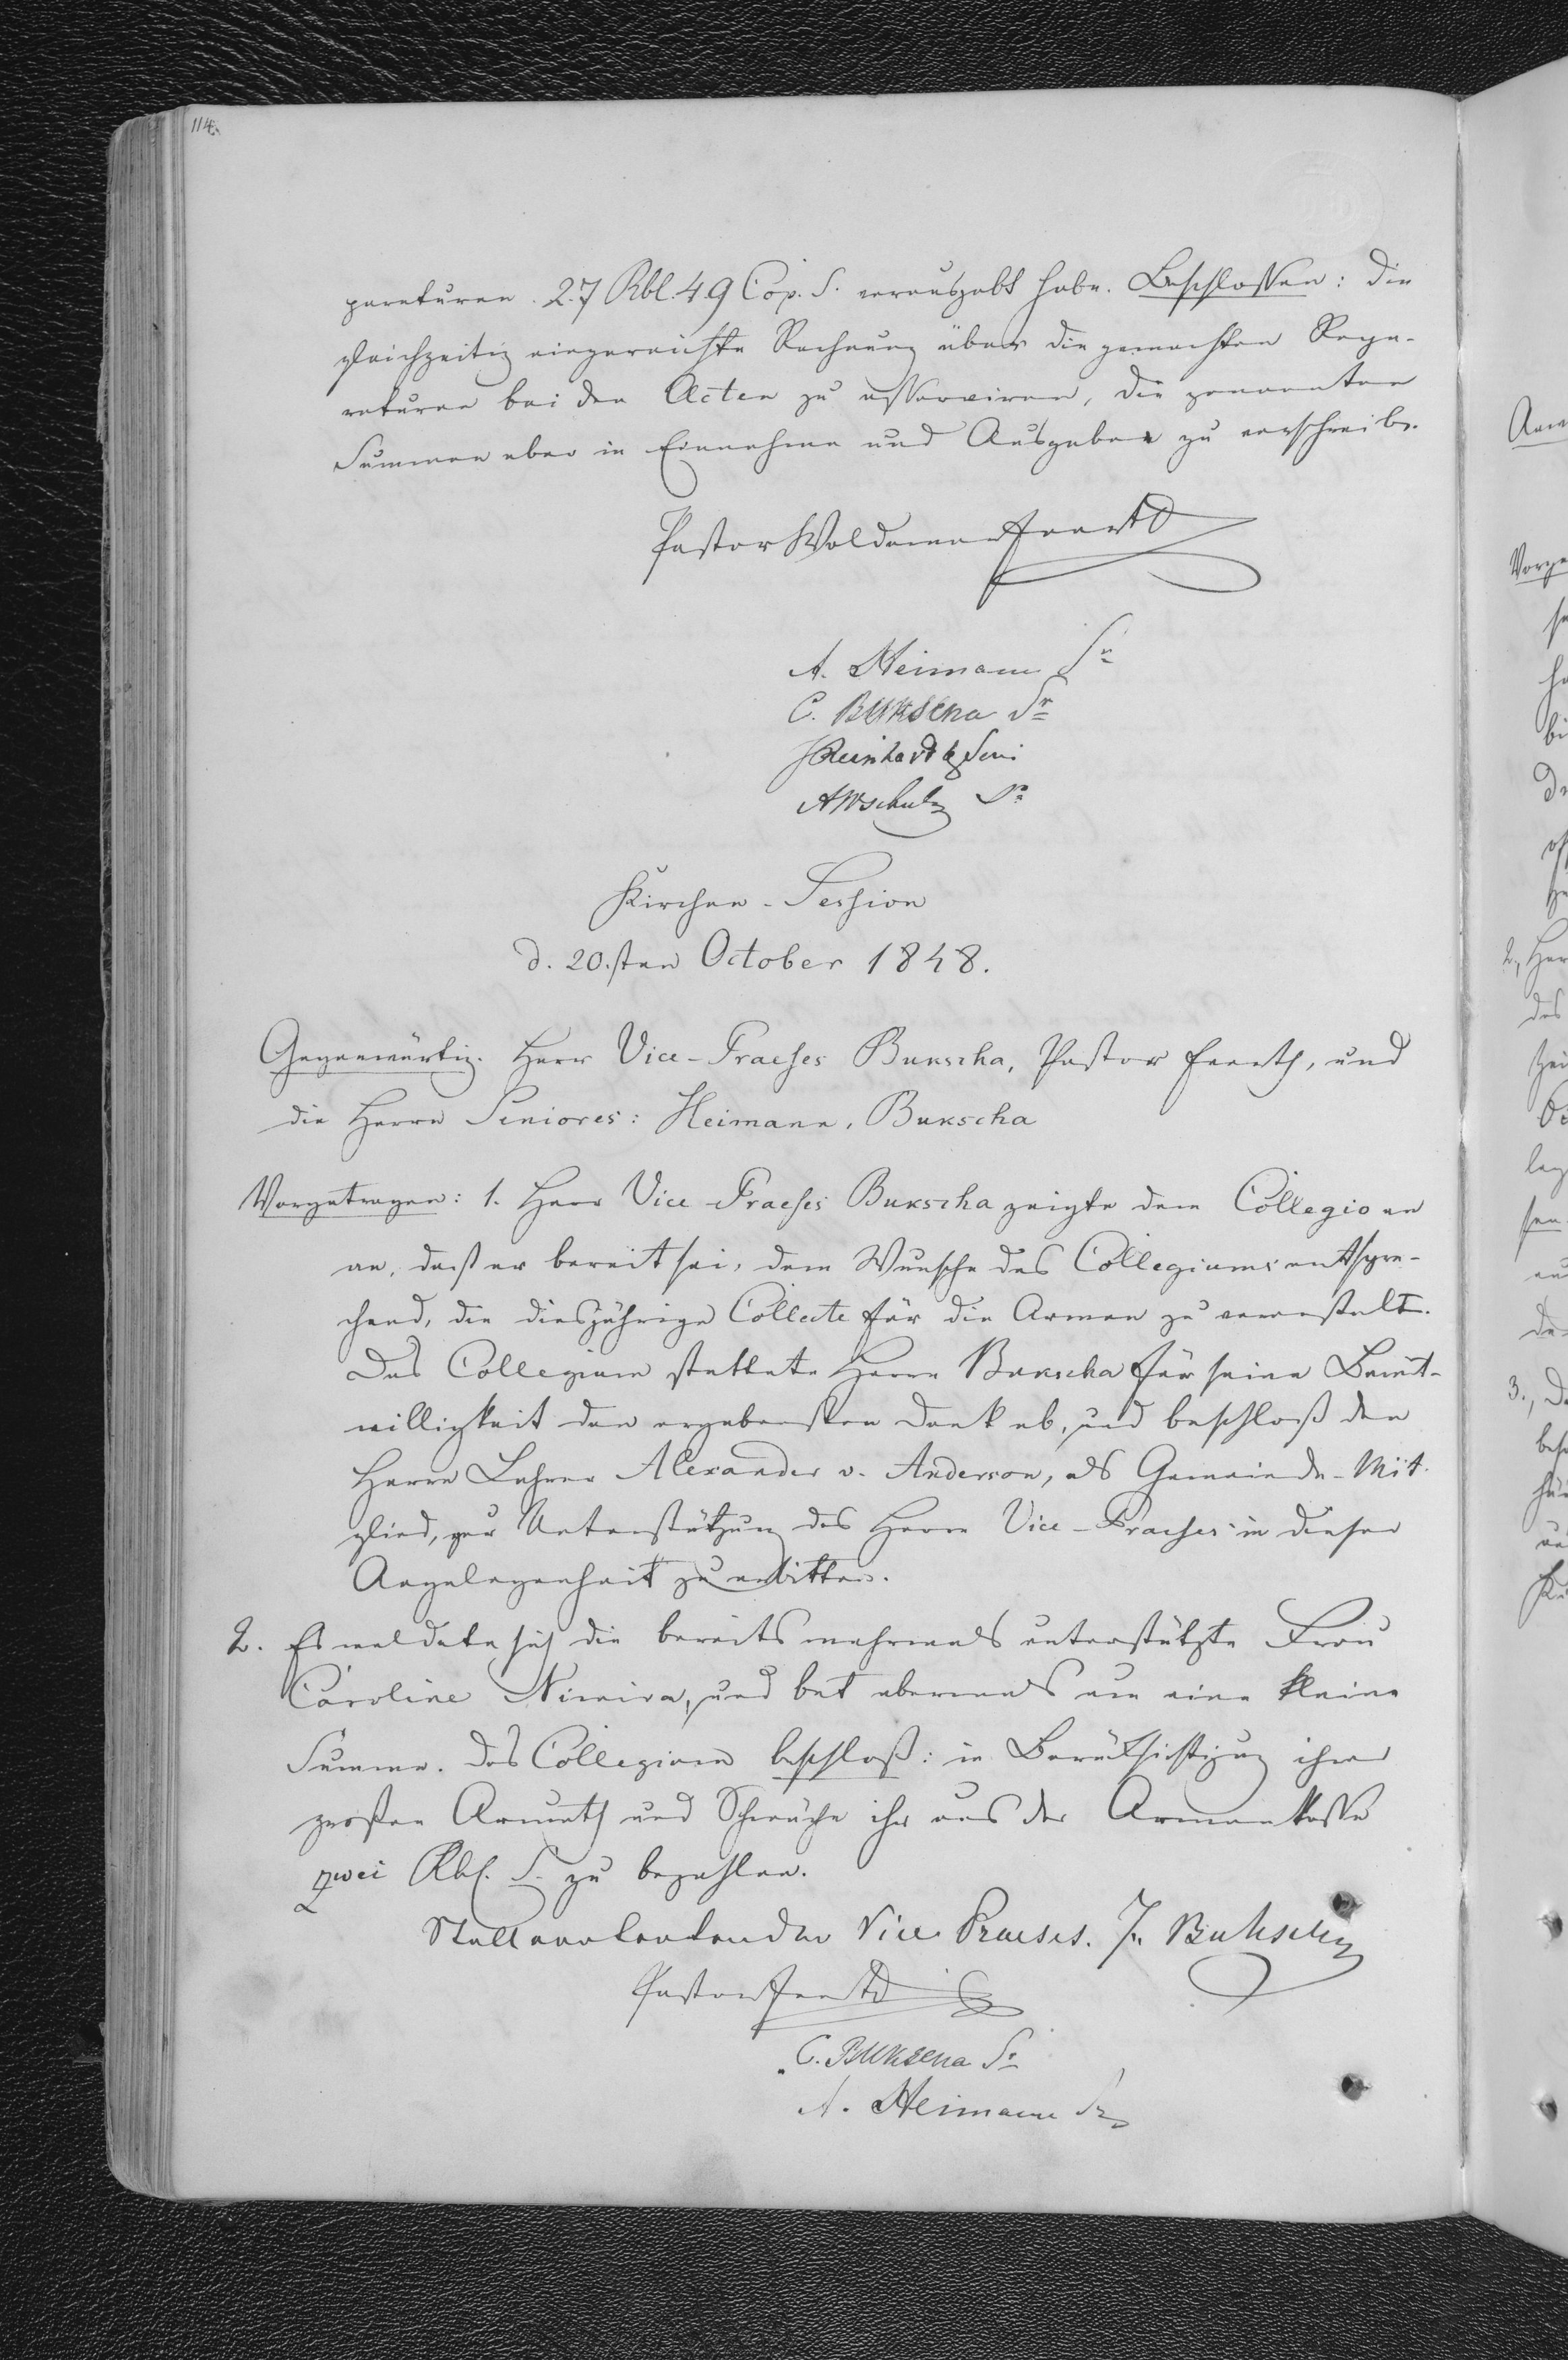 114.
paraturen 27 Rbl. 49 Cop. S. verausgabt habe. Beschlossen: die
gleichzeitig eingereichte Rechnung über die gemachten Repa-
raturen bei den Acten zu asserviren, die genannten
Summen aber in Einnahme und Ausgabe zu verschreib.
Pastor Woldemar
A. Heimann Sr
C. Bukscha Sr
Reinhardt Seni
AWSchulz Sr
Kirchen-Session
d. 20.sten October 1848.
Gegenwärtig. Herr Vice-Praeses Bukscha, Pastor Ferth, und
die Herrn Seniores: Heimann, Bukscha
Vorgetragen: 1. Herr Vice-Praeses Bukscha zeigte dem Collegio an
an, dass er bereit sei, dem Wunsche des Collegiums entspre-
chend, die diesjährige Collecte für die Armen zu veranstalt.
Das Collegium stattete Herrn Bukscha für seine Bereit-
willigkeit den ergebensten Dank ab, und beschloß den
Herrn Lehrer Alexander v. Anderson, als Gemeinde-Mit-
glied, zur Unterstützung des Herrn Vice-Praeses in dieser
Angelegenheit zu erbitten.
2. Es meldete sich die bereits mehrmals unterstützte Frau
Caroline und bat abermals um eine kleine
Summe. Das Collegium beschloß: in Berücksichtigung ihrer
großen Armuth und Schwäche ihr aus der Armenkasse
zwei Rbl. S. zu bezahlen.
Stellvertretender Vice Praeses. J. Bukscha
Pastor
C. Bukscha Sr
A. Heimann Sr